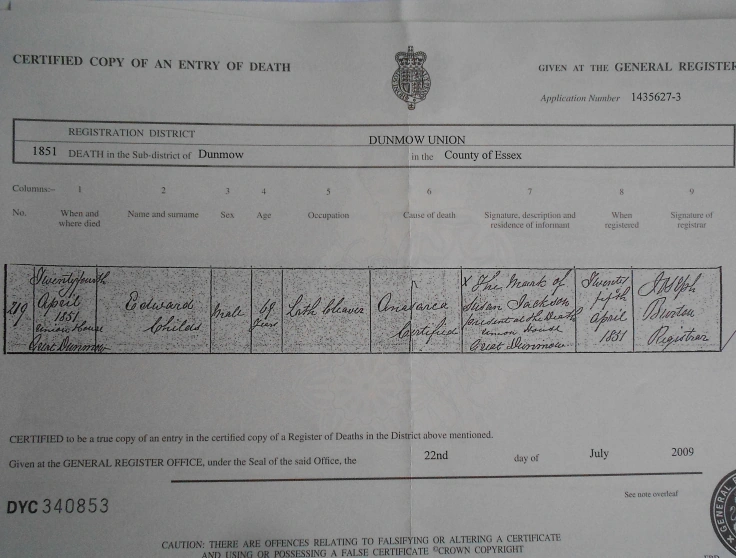 CERTIFIED COPY OF AN ENTRY OF DEATH
GIVEN AT THE GENERAL REGISTER
Application Number 1435627-3
REGISTRATION DISTRICT
DUNMOW UNION
1851 DEATH in the Sub-district of Dunmow in the County of Essex
Columns:- 1 2 3 4 5 6 7 8 9
No.
When and
where died
Name and surname
Sex
Age
Occupation
Cause of death
Signature, description and
residence of informant
When
registered
Signature of
registrar
219
Twenty fourth
April
1851
Union House
Great Dunmow
Edward
Childs
Male
69
Years
Lath Cleaver
Anasarca
Certified
X The Mark of
Susan Jackson
present at the Death
Union House
Great Dunmow
Twenty
fifth
April
1851
Joseph
Burton
Registrar
CERTIFIED to be a true copy of an entry in the certified copy of a Register of Deaths in the District above mentioned.
Given at the GENERAL REGISTER OFFICE, under the Seal of the said Office, the 22nd day of July 2009
DYC 340853
See note overleaf
GENERAL
CAUTION: THERE ARE OFFENCES RELATING TO FALSIFYING OR ALTERING A CERTIFICATE
AND USING OR POSSESSING A FALSE CERTIFICATE ©CROWN COPYRIGHT